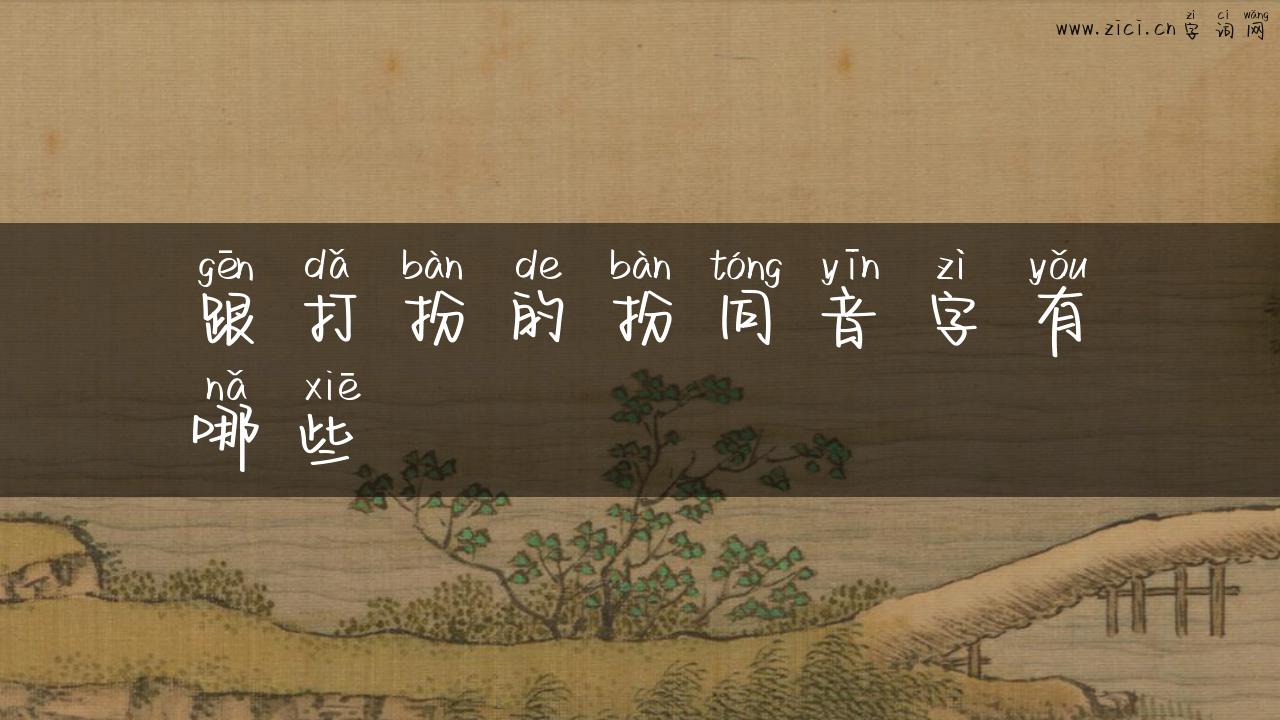 zì cí wǎng
www.zici.cn 字词网
gēn dǎ bàn de bàn tóng yīn zì yǒu
跟打扮的扮同音字有
nǎ xiē
哪些